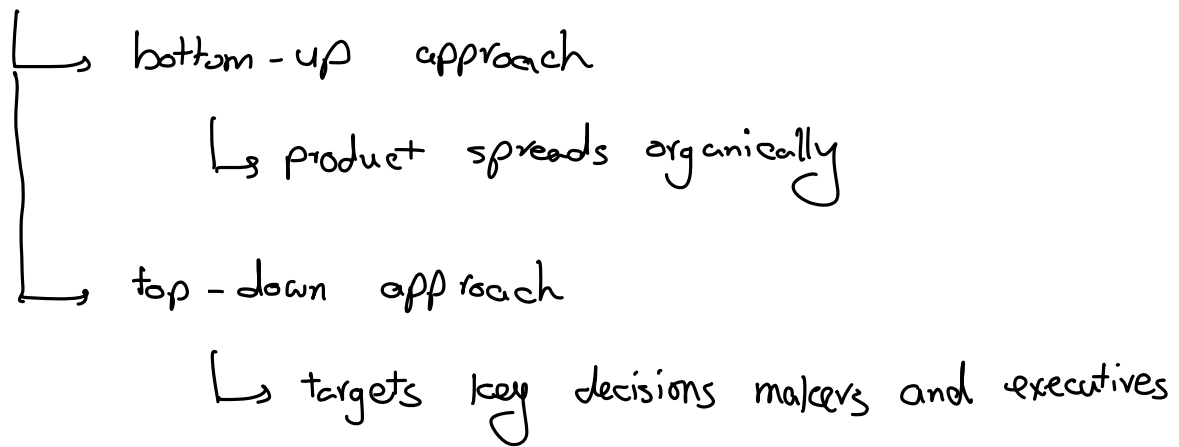 bottom-up approach
product spreads organically
top-down approach
targets key decisions makers and executives